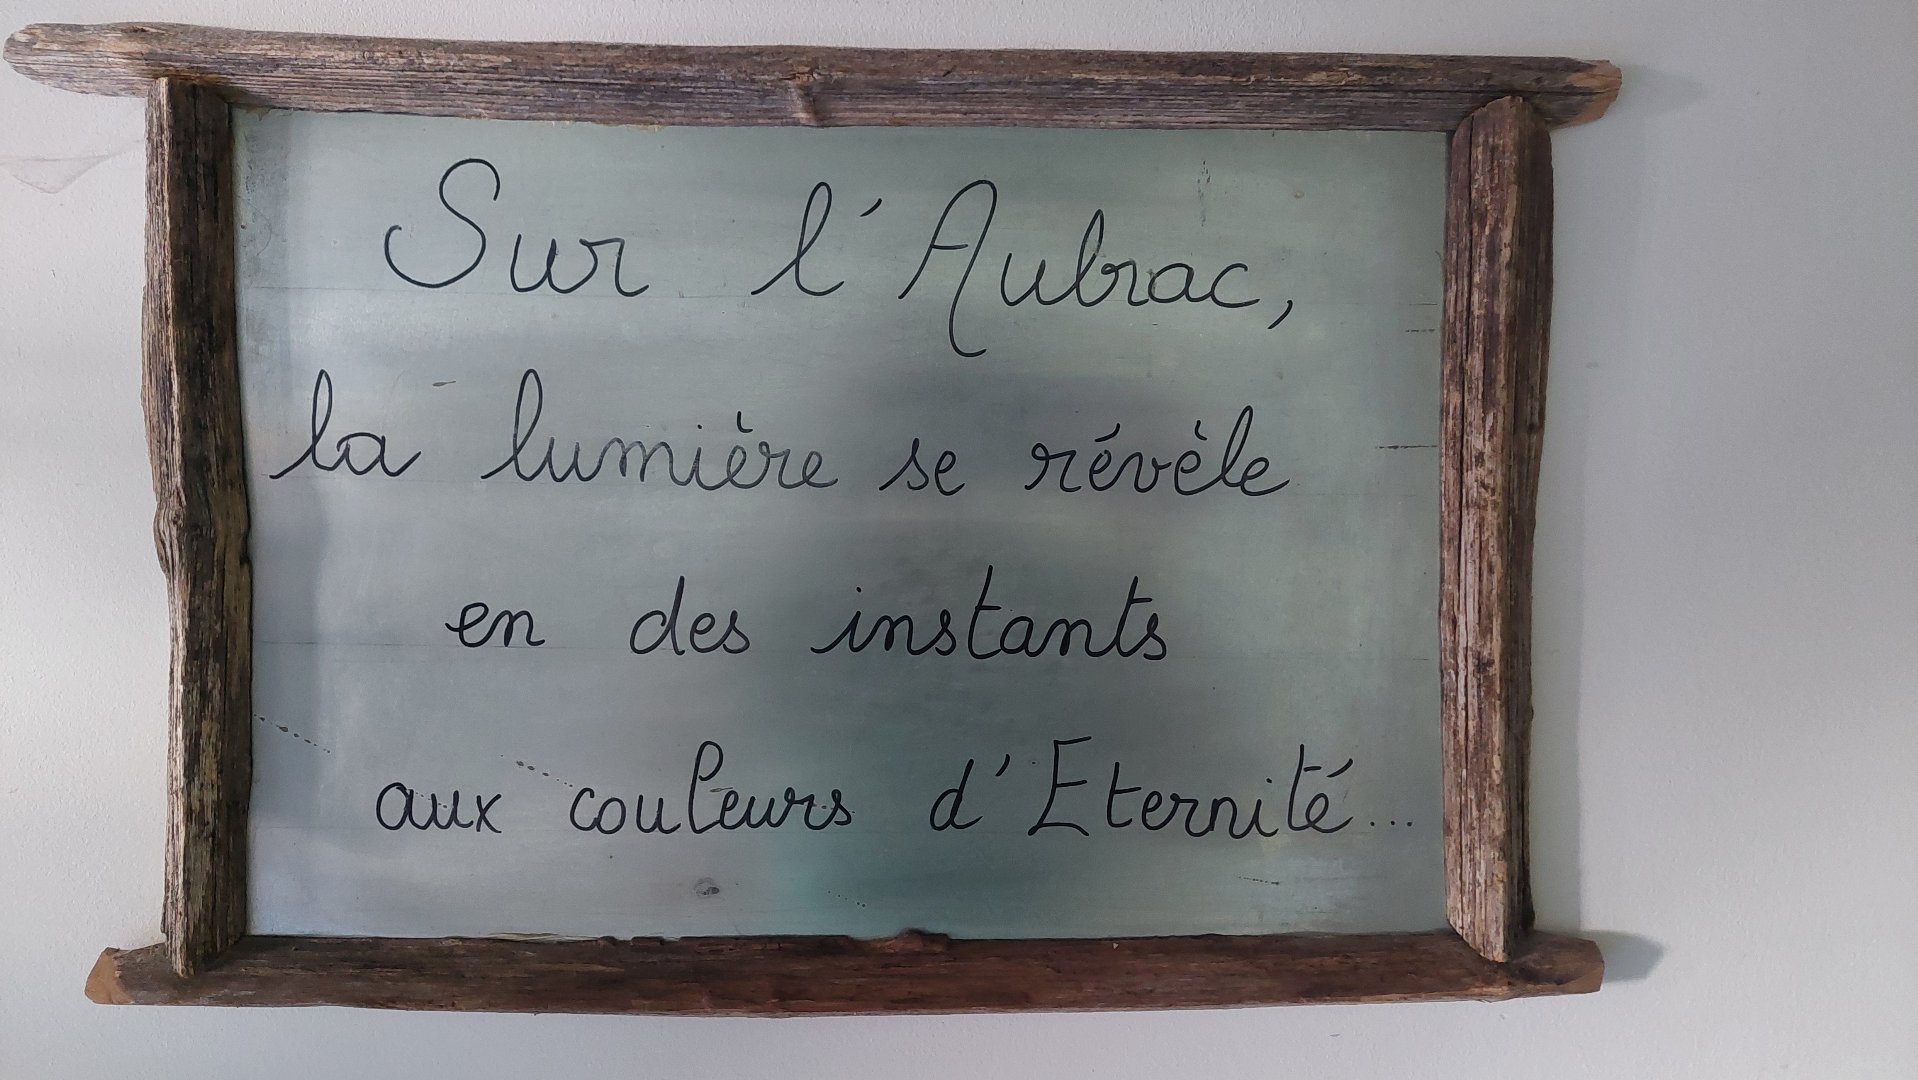 Sur l'Aubrac,
la lumière se révèle
en des instants
aux couleurs d'Eternité...